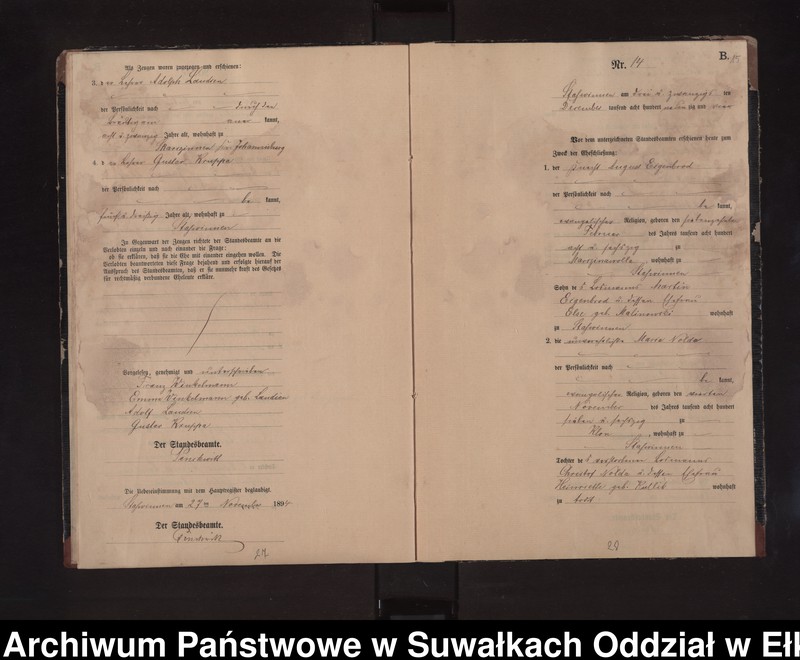 Als Zeugen waren zugezogen und erschienen:
3. der Losmann Adolph Landien
der Persönlichkeit nach durch den
kannt,
acht u zwanzig Jahre alt, wohnhaft zu
Johannisburg
4. der Gustav Kruppa
der Persönlichkeit nach
be kannt,
fünf u dreißig Jahre alt, wohnhaft zu
Staswinnen
In Gegenwart der Zeugen richtete der Standesbeamte an die
Verlobten einzeln und nach einander die Frage:
ob sie erklären, daß sie die Ehe mit einander eingehen wollen. Die
Verlobten beantworteten diese Frage bejahend und erfolgte hierauf der
Ausspruch des Standesbeamten, daß er sie nunmehr kraft des Gesetzes
für rechtmäßig verbundene Eheleute erkläre.
Vorgelesen, genehmigt und unterschrieben
Franz Winkelmann
Emma Winkelmann geb. Landien
Adolf Landien
Gustav Kruppa
Der Standesbeamte.
Die Uebereinstimmung mit dem Hauptregister beglaubigt.
Staswinnen am 27ten November 1894
Der Standesbeamte.
27
B.
Nr. 14
Staswinnen am drei u. zwanzigsten
December tausend acht hundert neunzig und vier
Vor dem unterzeichneten Standesbeamten erschienen heute zum
Zweck der Eheschließung:
1. der Knecht August Ergenbrod
der Persönlichkeit nach
be kannt,
evangelischer Religion, geboren den siebenzehnten
Februar des Jahres tausend acht hundert
acht u. sechszig zu
Marczinawolla, wohnhaft zu
Staswinnen
Sohn des Losmanns Martin
Ergenbrod u. dessen Ehefrau
geb. Malinowski wohnhaft
zu Staswinnen
2. die unverehelichte Maria Nolda
der Persönlichkeit nach
be kannt,
evangelischer Religion, geboren den vierten
November des Jahres tausend acht hundert
sieben u. sechszig zu
, wohnhaft zu
Staswinnen
Tochter des verstorbenen Losmanns
Christof Nolda u. dessen Ehefrau
Henriette geb. wohnhaft
zu
28
Archiwum Państwowe w Suwałkach Oddział w Ełk